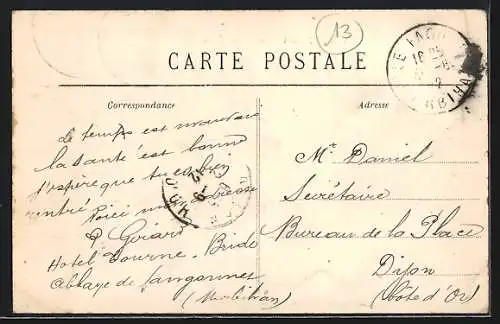 13
CARTE POSTALE
Correspondance
Adresse
Le temps est mauvais
la santé est bonne
j'espère que tu es bien
rentré Voici mon adresse
P. Girard
Hotel Tourne-Bride
Abbaye de Langonnet
(Morbihan)
Mr Daniel
Secrétaire
Bureau de la Place
Dijon
(Côte d'Or)